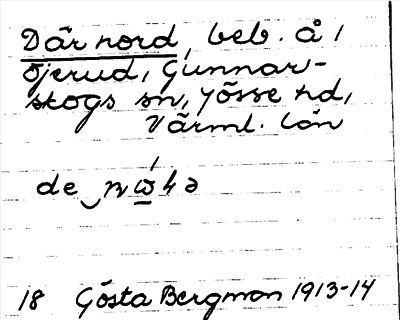 Där nord, beb. å,
Öjerud, Gunnar-
skogs sn, Jösse hd,
Värml. län
de
18 Gösta Bergman 1913-14